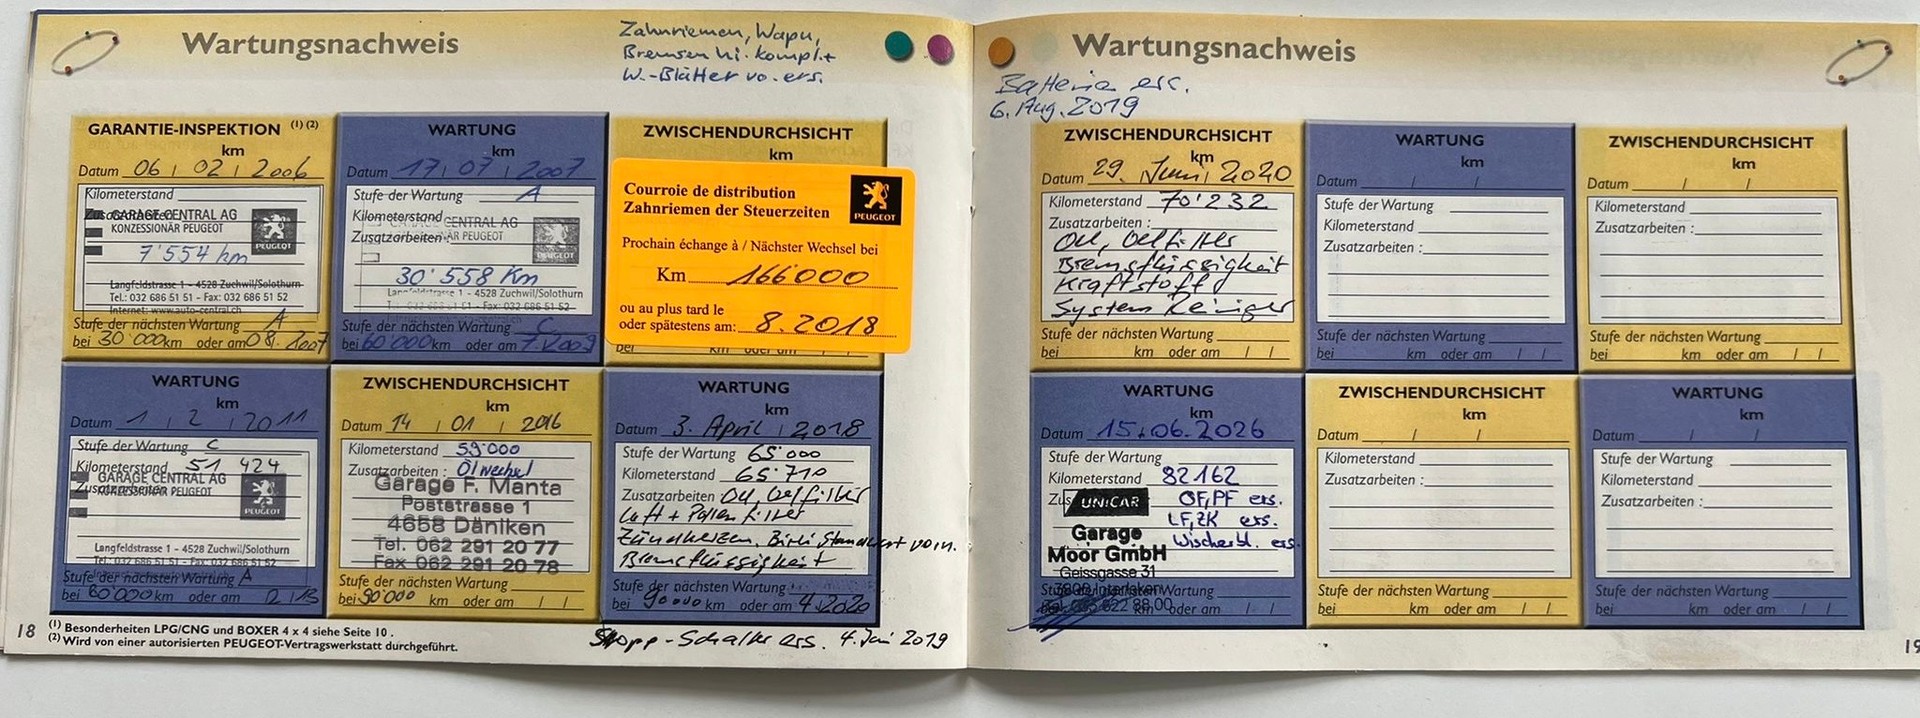 Wartungsnachweis
Zahnriemen, Wapu,
Bremsen hi. komplt
W.-Blätter vo. ers.
GARANTIE-INSPEKTION (1) (2)
km
Datum 06 / 02 / 2006
Kilometerstand
GARAGE CENTRAL AG
KONZESSIONÄR PEUGEOT
PEUGEOT
7'554 km
Langfeldstrasse 1 - 4528 Zuchwil/Solothurn
Tel.: 032 686 51 51 - Fax: 032 686 51 52
Internet: www.auto-central.ch
Stufe der nächsten Wartung A
bei 30'000 km oder am 08. 2007
WARTUNG
km
Datum 17 / 07 / 2007
Stufe der Wartung A
Kilometerstand
GARAGE CENTRAL AG
Zusatzarbeiten:
KONZESSIONÄR PEUGEOT
PEUGEOT
30'558 Km
Langfeldstrasse 1 - 4528 Zuchwil/Solothurn
Stufe der nächsten Wartung C
bei 60'000 km oder am 7.2009
ZWISCHENDURCHSICHT
km
Courroie de distribution
Zahnriemen der Steuerzeiten
PEUGEOT
Prochain échange à / Nächster Wechsel bei
Km 166000
ou au plus tard le
oder spätestens am: 8.2018
bei km oder am / /
WARTUNG
km
Datum 1 / 2 / 2011
Stufe der Wartung C
Kilometerstand 51 424
GARAGE CENTRAL AG
Zusatzarbeiten
KONZESSIONÄR PEUGEOT
PEUGEOT
Langfeldstrasse 1 - 4528 Zuchwil/Solothurn
Tel.: 032 686 51 51 - Fax: 032 686 51 52
Stufe der nächsten Wartung A
bei 60'000 km oder am 2.13
ZWISCHENDURCHSICHT
km
Datum 14 / 01 / 2016
Kilometerstand 59'000
Zusatzarbeiten : Ölwechsel
Garage F. Manta
Poststrasse 1
4658 Däniken
Tel. 062 291 20 77
Fax 062 291 20 78
Stufe der nächsten Wartung
bei 90'000 km oder am / /
WARTUNG
km
Datum 3. April / 2018
Stufe der Wartung 65'000
Kilometerstand 65'710
Zusatzarbeiten Oel, Oelfilter
Luft + Pollenfilter
Zündkerzen, Birli, Standlicht vo. n.
Bremsflüssigkeit
Stufe der nächsten Wartung
bei 90000 km oder am 4.2020
18
(1) Besonderheiten LPG/CNG und BOXER 4 x 4 siehe Seite 10 .
(2) Wird von einer autorisierten PEUGEOT-Vertragswerkstatt durchgeführt.
Stopp-Schalter ers. 4. Juni 2019
Wartungsnachweis
Batterie ers.
6. Aug. 2019
ZWISCHENDURCHSICHT
km
Datum 29. Juni 2020
Kilometerstand 70'232
Zusatzarbeiten :
Oel, Oelfilter
Bremsflüssigkeit
Kraftstoff
System Reiniger
Stufe der nächsten Wartung
bei km oder am / /
WARTUNG
km
Datum / /
Stufe der Wartung
Kilometerstand
Zusatzarbeiten :
Stufe der nächsten Wartung
bei km oder am / /
ZWISCHENDURCHSICHT
km
Datum / /
Kilometerstand
Zusatzarbeiten :
Stufe der nächsten Wartung
bei km oder am / /
WARTUNG
km
Datum 15.06.2026
Stufe der Wartung
Kilometerstand 82162
UNICAR
OF, PF ers.
LF, ZK ers.
Garage
Wischerbl. ers.
Moor GmbH
Geissgasse 31
3800 Interlaken
km oder am / /
ZWISCHENDURCHSICHT
km
Datum / /
Kilometerstand
Zusatzarbeiten :
Stufe der nächsten Wartung
bei km oder am / /
WARTUNG
km
Datum / /
Stufe der Wartung
Kilometerstand
Zusatzarbeiten :
Stufe der nächsten Wartung
bei km oder am / /
19